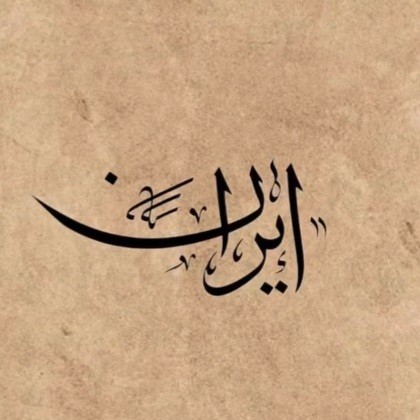 ایران